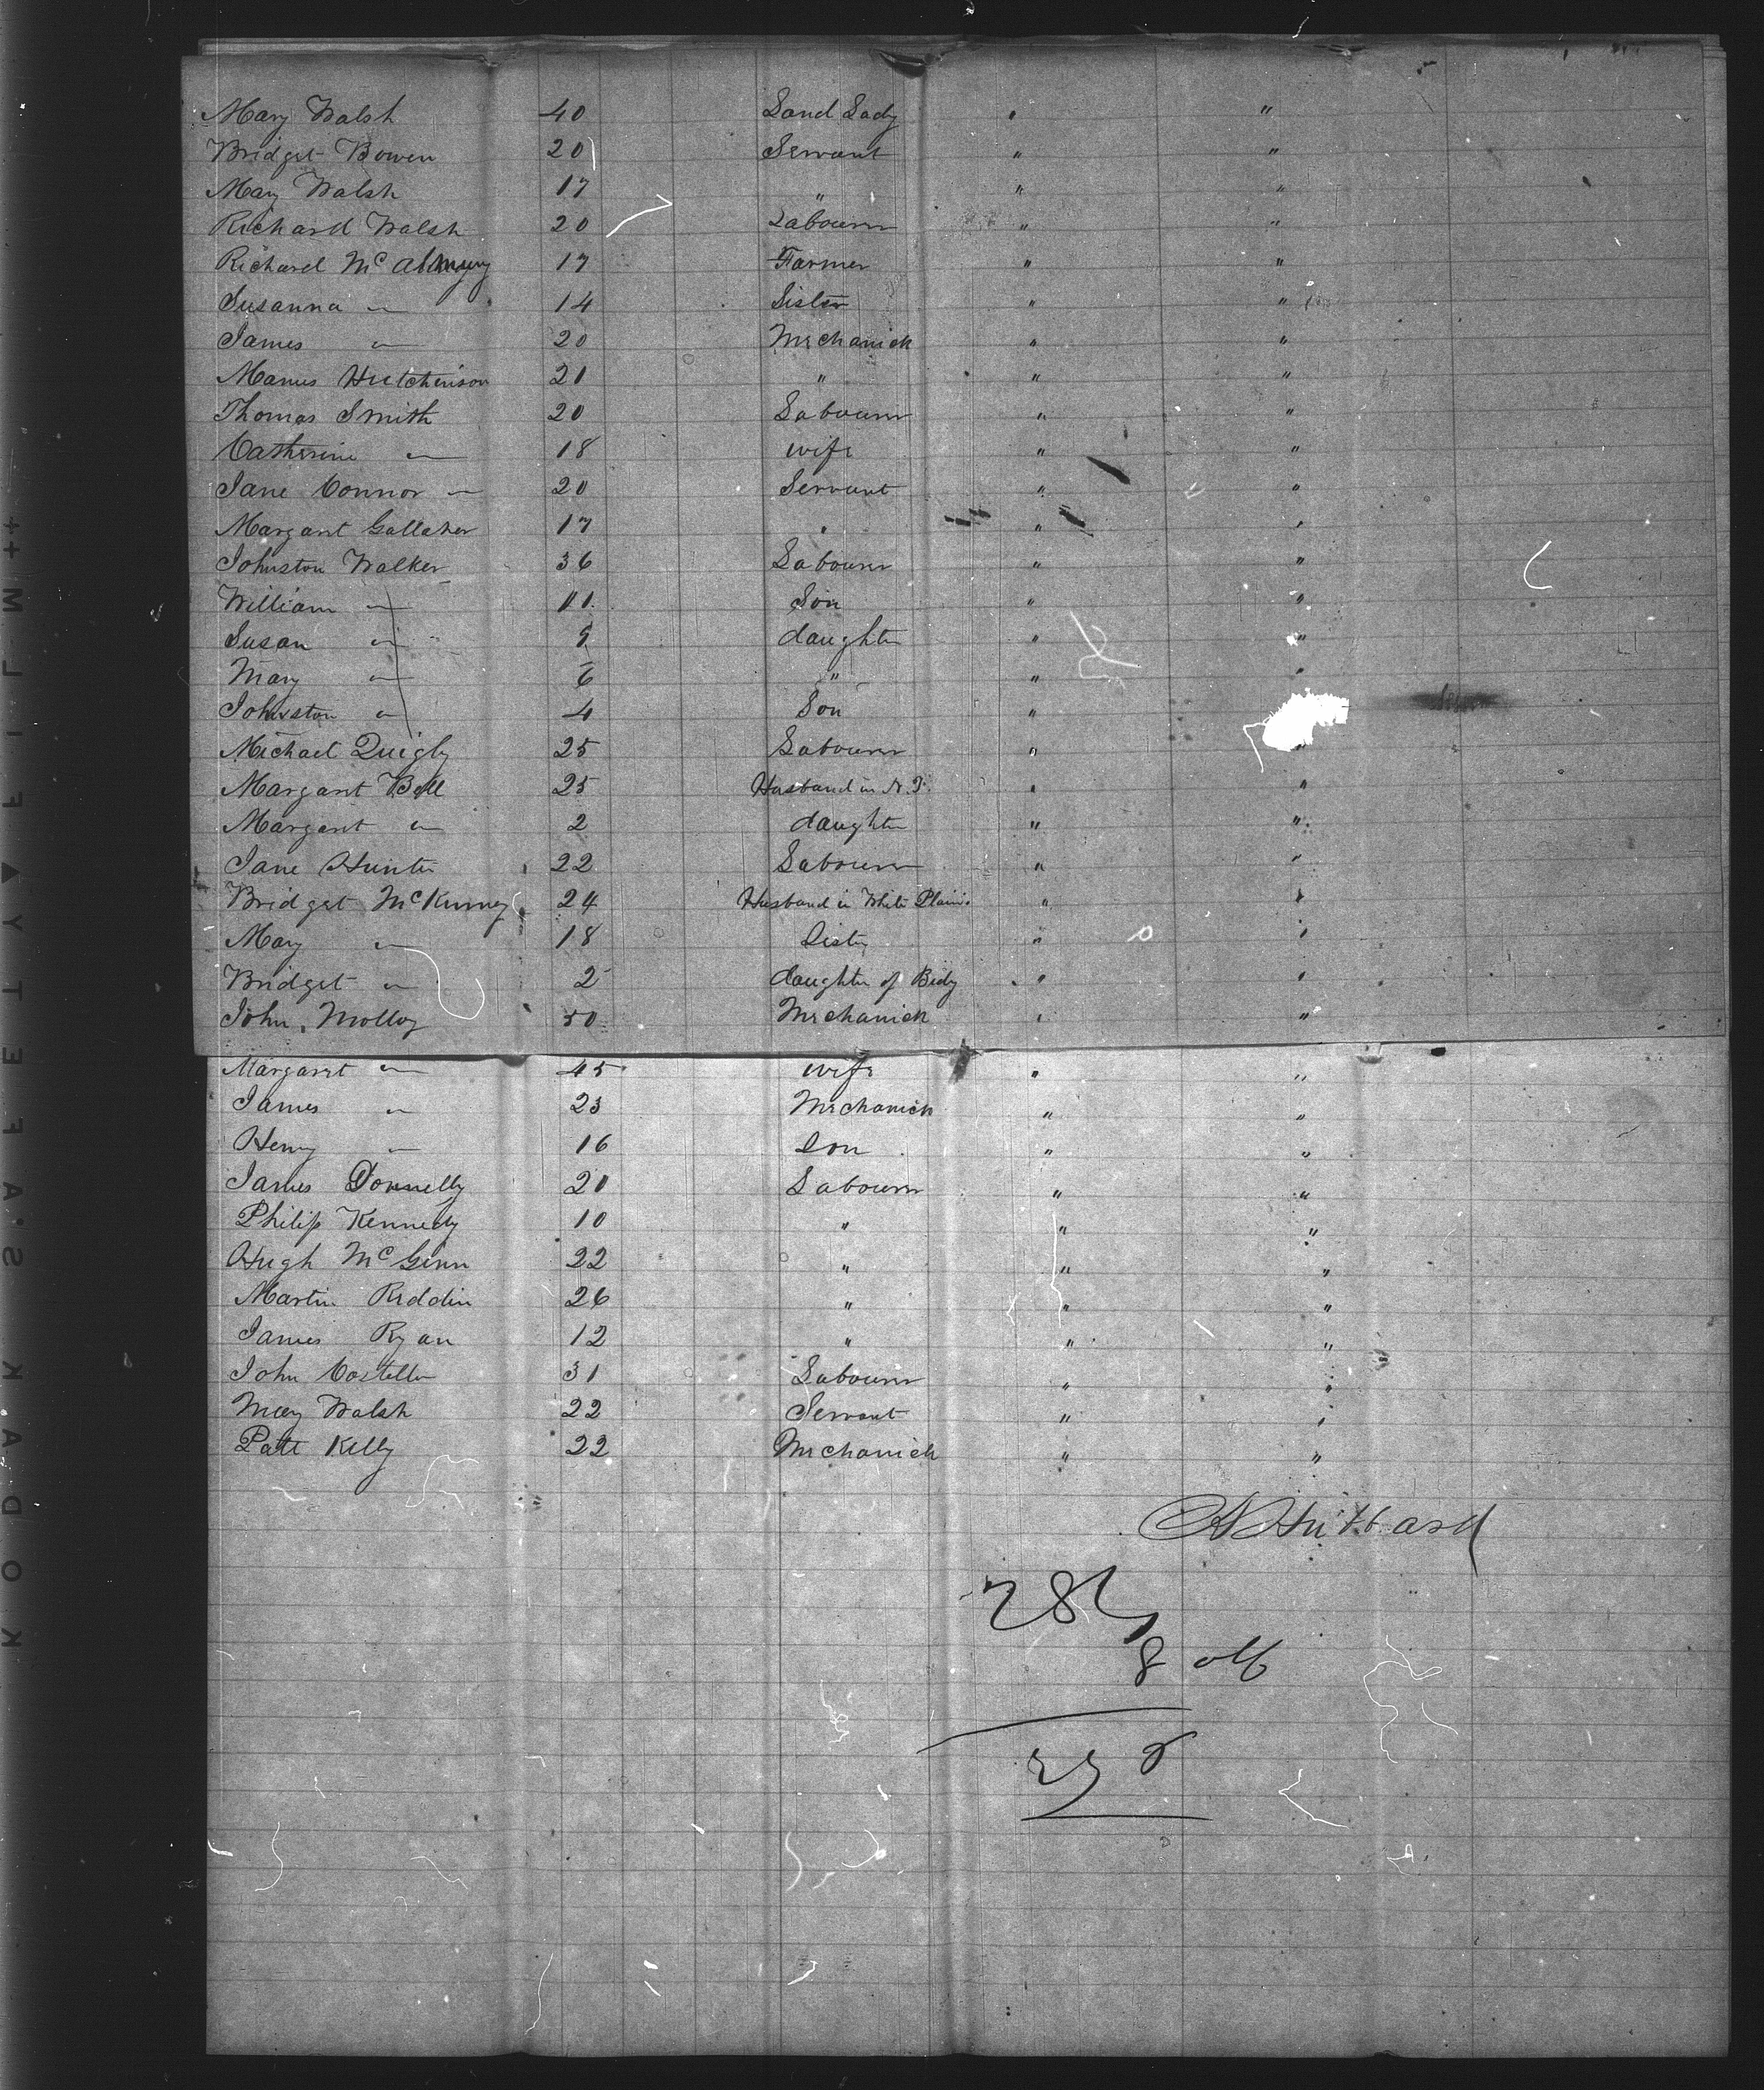 Mary Walsh 40 Land Lady " "
Bridget Bowen 20 Servant " "
Mary Walsh 17 " " "
Richard Walsh 20 Labourer " "
Richard Mc 17 Farmer " "
Susanna " 14 Sister " "
James " 20 Mechanick " "
Manus Hutchinson 21 " " "
Thomas Smith 20 Labourer " "
Catherine " 18 wife " "
Jane Connor 20 Servant " "
Margaret Gallaher 17 " " "
Johnston Walker 36 Labourer " "
William " 11 Son " "
Susan " 9 daughter " "
Mary " 6 " " "
Johnston " 4 Son " "
Michael Quigly 25 Labourer " "
Margaret Bell 25 Husband in N. Y. " "
Margaret " 2 daughter " "
Jane Hunter 22 Labourer " "
Bridget McKinney 24 Husband in White Plains " "
Mary " 18 Sister " "
Bridget " 2 daughter of Bidy " "
John Molloy 50 Mechanick " "
Margaret " 45 wife " "
James " 23 Mechanick " "
Henry " 16 Son " "
James Donnelly 20 Labourer " "
Philip Kennedy 10 " " "
Hugh McGinn 22 " " "
Martin Reddin 26 " " "
James Ryan 12 " " "
John Costello 31 Labourer " "
Mary Walsh 22 Servant " "
Patt Kelly 22 Mechanick " "
Hubbard
8 off
KODAK SAFETY FILM